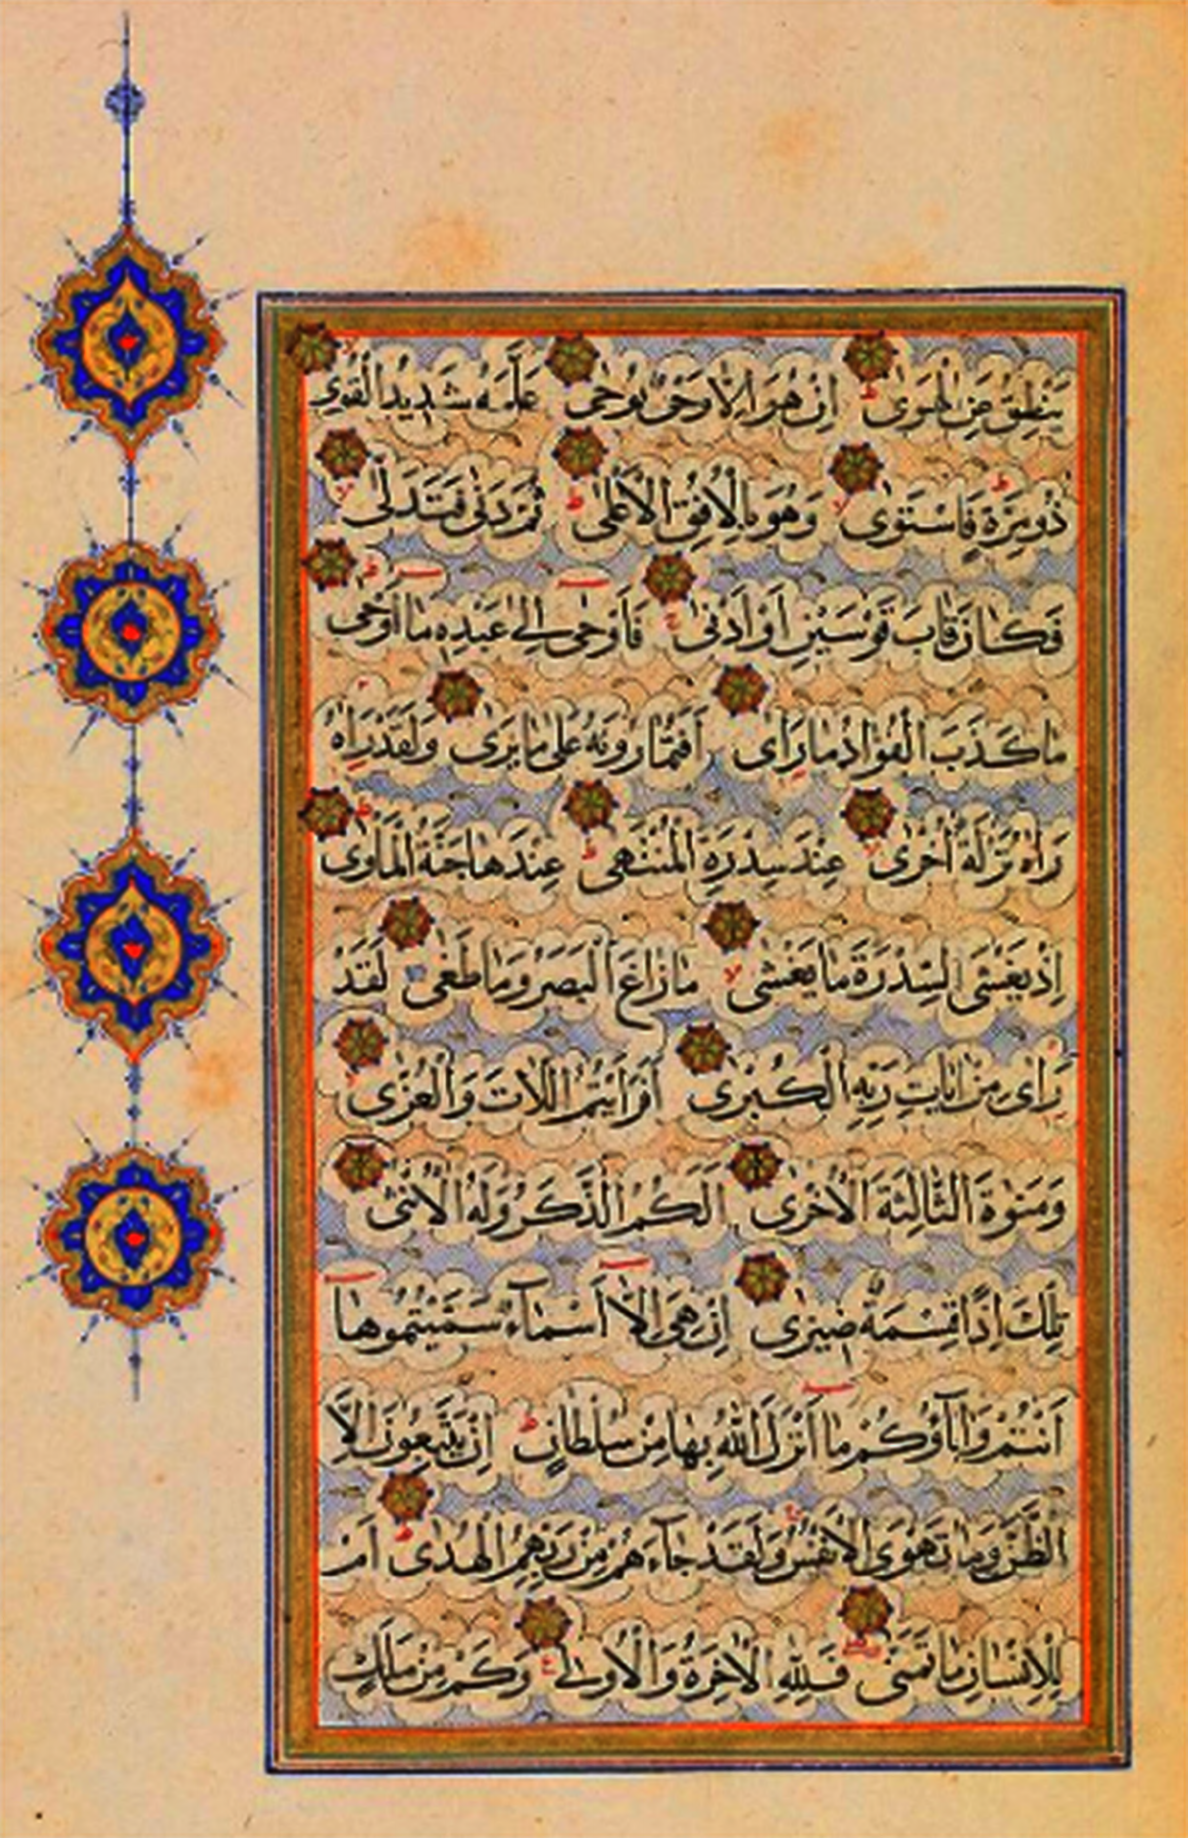 يَنْطِقُ عَنِ الْهَوٰى اِنْ هُوَ اِلَّا وَحْىٌ يُوحٰى عَلَّمَهُ شَدِيدُ الْقُوٰى
ذُو مِرَّةٍ فَاسْتَوٰى وَهُوَ بِالْاُفُقِ الْاَعْلٰى ثُمَّ دَنٰى فَتَدَلّٰى
فَكَانَ قَابَ قَوْسَيْنِ اَوْ اَدْنٰى فَاَوْحٰى اِلٰى عَبْدِهٖ مَا اَوْحٰى
مَا كَذَبَ الْفُوَادُ مَا رَاٰى اَفَتُمَارُونَهُ عَلٰى مَا يَرٰى وَلَقَدْ رَاٰهُ
رَاٰهُ نَزْلَةً اُخْرٰى عِنْدَ سِدْرَةِ الْمُنْتَهٰى عِنْدَهَا جَنَّةُ الْمَاْوٰى
اِذْ يَغْشَى السِّدْرَةَ مَا يَغْشٰى مَا زَاغَ الْبَصَرُ وَمَا طَغٰى لَقَدْ
رَاٰى مِنْ اٰيَاتِ رَبِّهِ الْكُبْرٰى اَفَرَاَيْتُمُ اللَّاتَ وَالْعُزّٰى
وَمَنٰوةَ الثَّالِثَةَ الْاُخْرٰى اَلَكُمُ الذَّكَرُ وَلَهُ الْاُنْثٰى
تِلْكَ اِذًا قِسْمَةٌ ضِيزٰى اِنْ هِىَ اِلَّا اَسْمَآءٌ سَمَّيْتُمُوهَا
اَنْتُمْ وَاٰبَآؤُكُمْ مَا اَنْزَلَ اللّٰهُ بِهَا مِنْ سُلْطَانٍ اِنْ يَتَّبِعُونَ اِلَّا
الظَّنَّ وَمَا تَهْوَى الْاَنْفُسُ وَلَقَدْ جَآءَهُمْ مِنْ رَبِّهِمُ الْهُدٰى اَمْ
لِلْاِنْسَانِ مَا تَمَنّٰى فَلِلّٰهِ الْاٰخِرَةُ وَالْاُولٰى وَكَمْ مِنْ مَلَكٍ